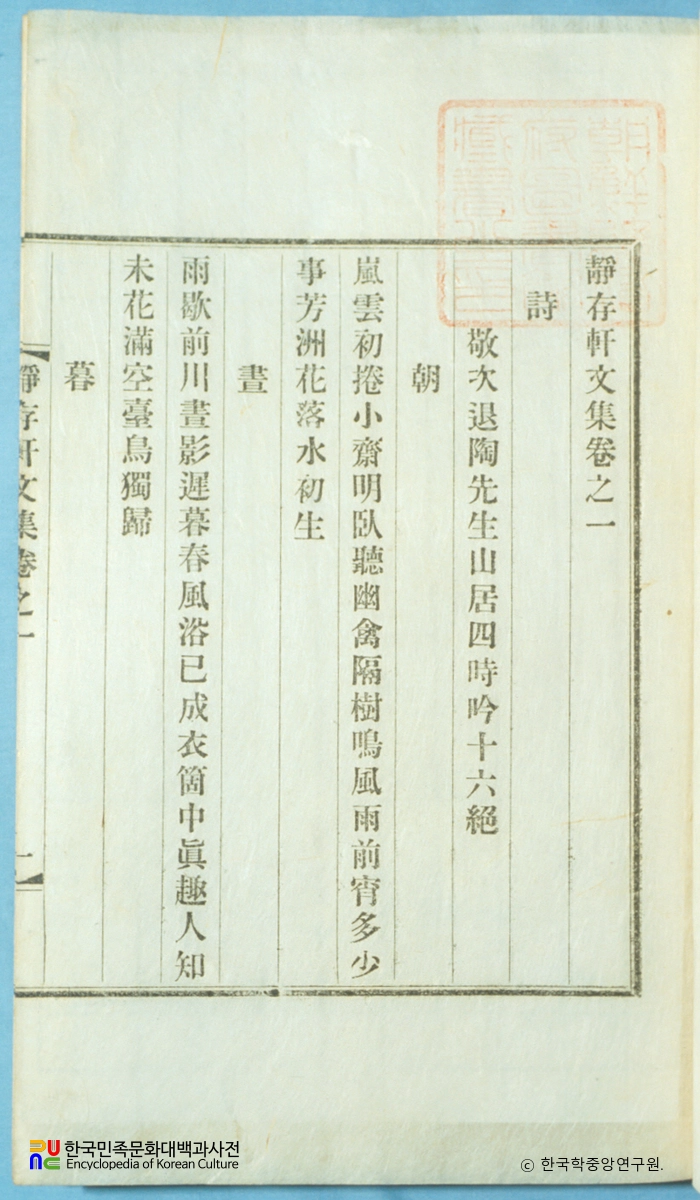 靜存軒文集卷之一
詩
敬次退陶先生山居四時吟十六絕
朝
嵐雲初捲小齋明臥聽幽禽隔樹鳴風雨前宵多少
事芳洲花落水初生
晝
雨歇前川晝影遲暮春風浴已成衣箇中眞趣人知
未花滿空臺鳥獨歸
暮
靜存軒文集卷之一
한국민족문화대백과사전
Encyclopedia of Korean Culture
© 한국학중앙연구원.